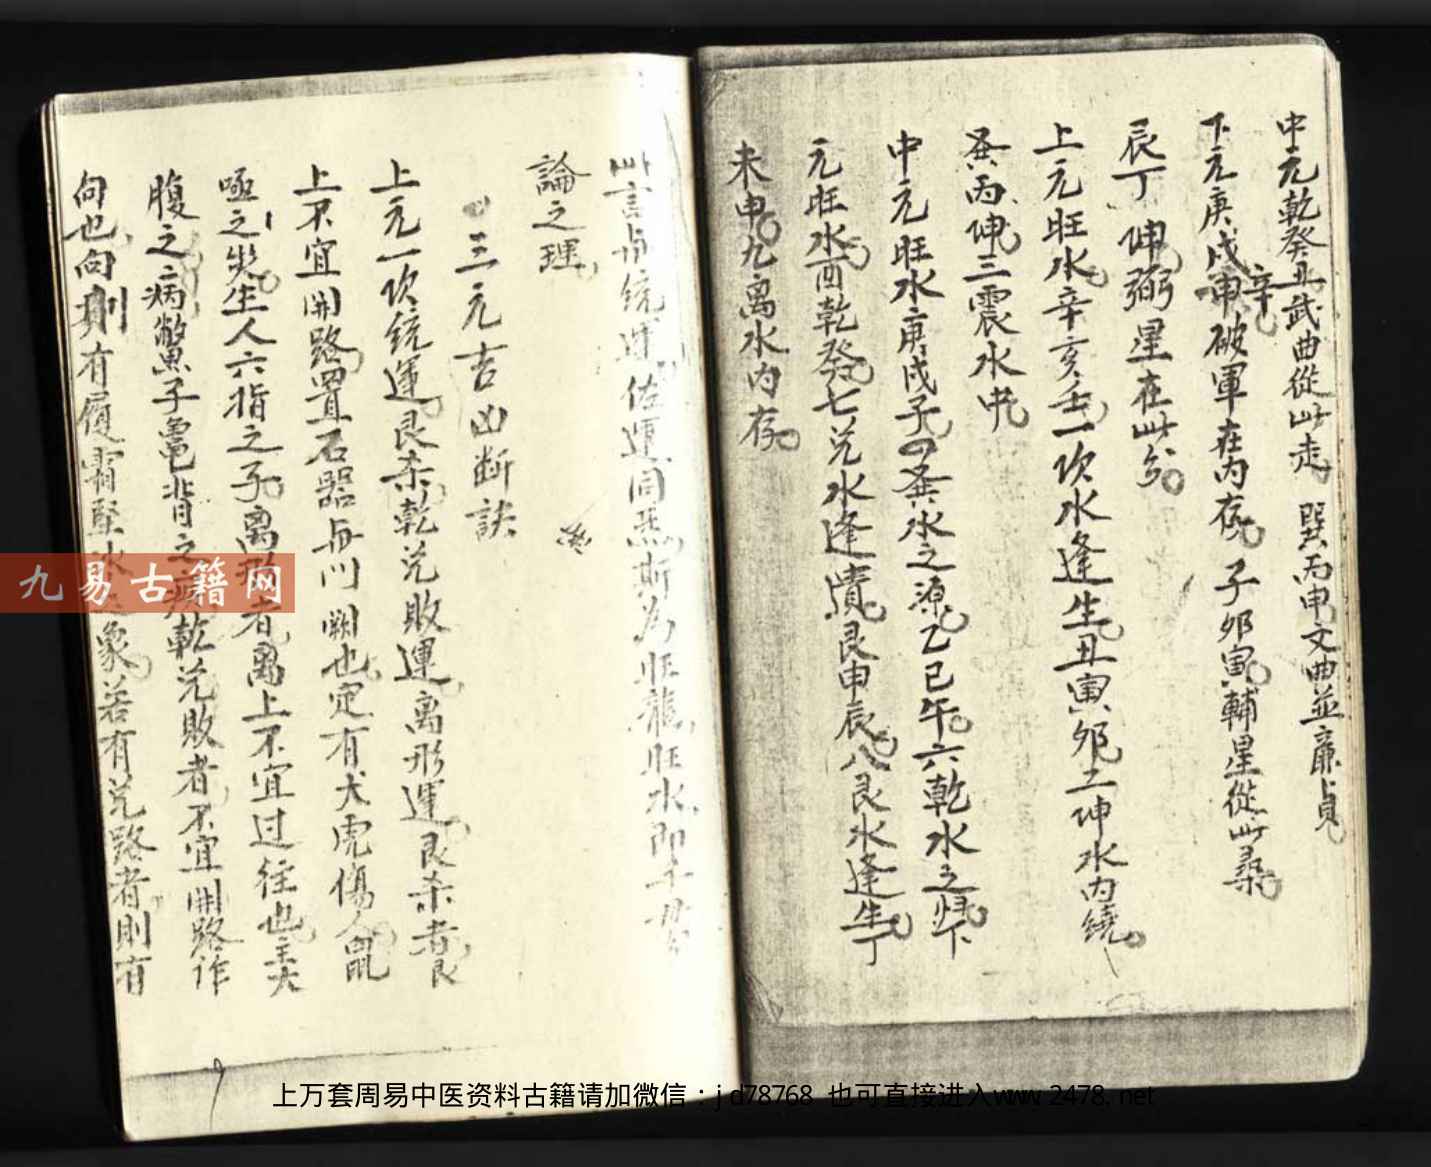 中元乾癸丑武曲從此走 巽丙申文曲並廉貞
下元庚戌辛破軍在內存 子卯寅輔星從此尋
辰丁坤弼星在此分
上元旺水辛亥壬一坎水逢生丑寅卯二坤水內繞
巽丙坤三震水中
中元旺水庚戌子四巽水之源乙巳午六乾水之归下
元旺水酉乾癸七兑水逢瀆艮申辰八艮水逢生丁
未申九离水内存
論之理
三元吉凶断訣
上元一坎統運艮杀乾兑敗運离形運艮杀者艮
上不宜開路置石器与门阙也定有犬虎傷人
哑之災生人六指之子离形者离上不宜过往也主大
腹之病鱉魚子龜背之病乾兑敗者不宜開路作
向也向則有履霜堅冰之象若有兑路者則有
九易古籍网
上万套周易中医资料古籍请加微信：jd78768 也可直接进入www.2478.net